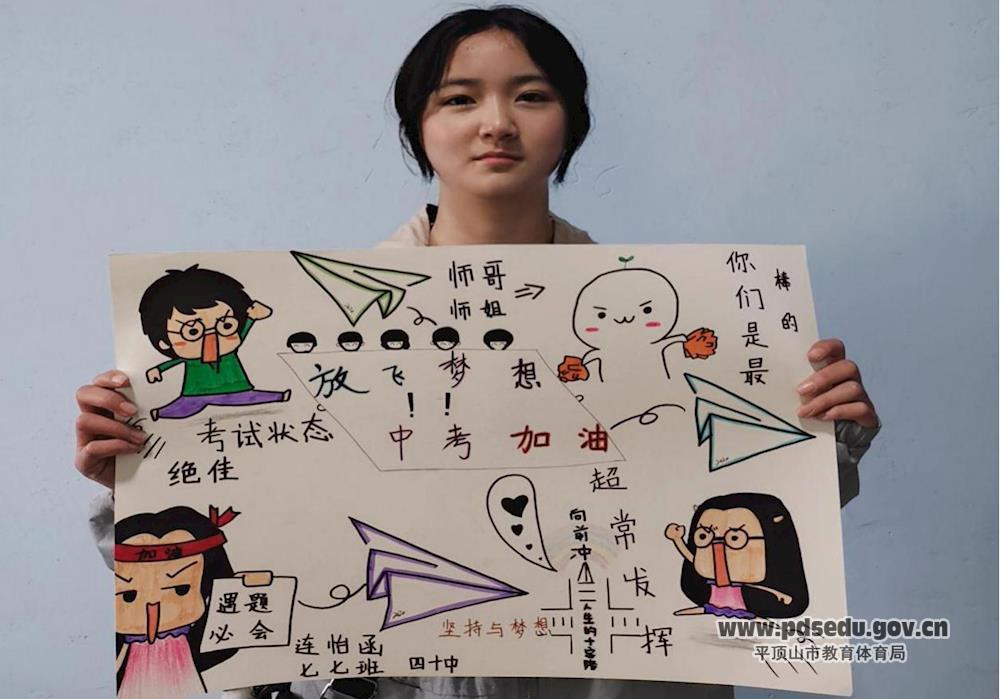 师哥
师姐
你们是最
棒的
放飞梦想
!!
中考加油
考试状态
绝佳
超常发挥
向前冲
人生的十字路
加油
遇题
必会
坚持与梦想
连怡函
七七班 四十中
www.pdsedu.gov.cn
平顶山市教育体育局